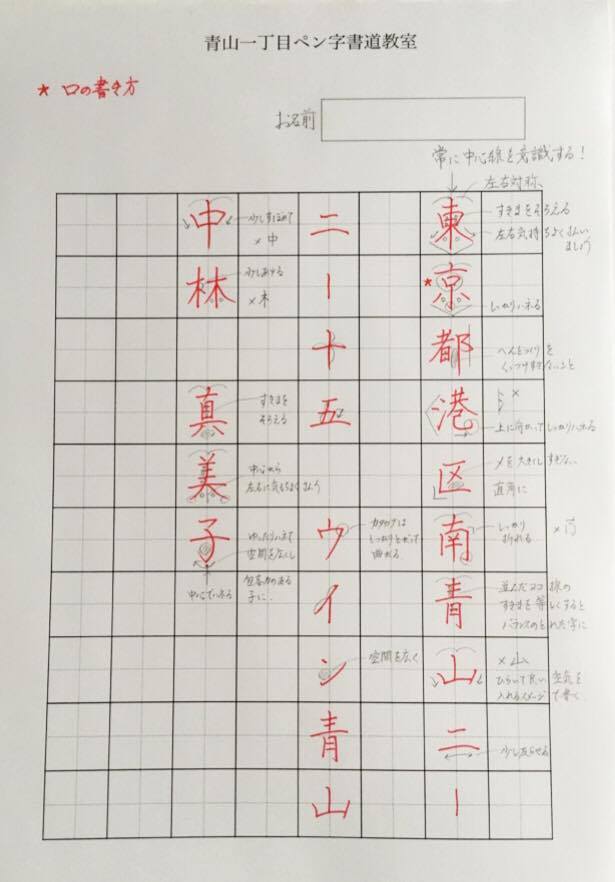 青山一丁目ペン字書道教室
* 口の書き方
お名前
常に中心線を意識する!
左右対称
東京都港区南青山二ー
すきまをそろえる
左右気持ちよくはらい
ましょう
しっかりハネる
へんとつくりを
くっつけすぎないこと
×
上に向かってしっかりハネる
メを大きくしすぎない
直角に
しっかり
折れる
×
並んだヨコ線の
すきまを等しくすると
バランスのとれた字に
×山
ひらいて良い空気を
入れるイメージで書く
少し反らせる
二ー十五
ウイン青山
カタカナは
しっかりとがって
曲がる
空間を広く
中林
真美子
少しすぼめて
×中
少しあける
×木
すきまを
そろえる
中心から
左右に気もちよくはらう
ゆったりハネて
空間を広くし
包容力のある
子に.
中心でハネる